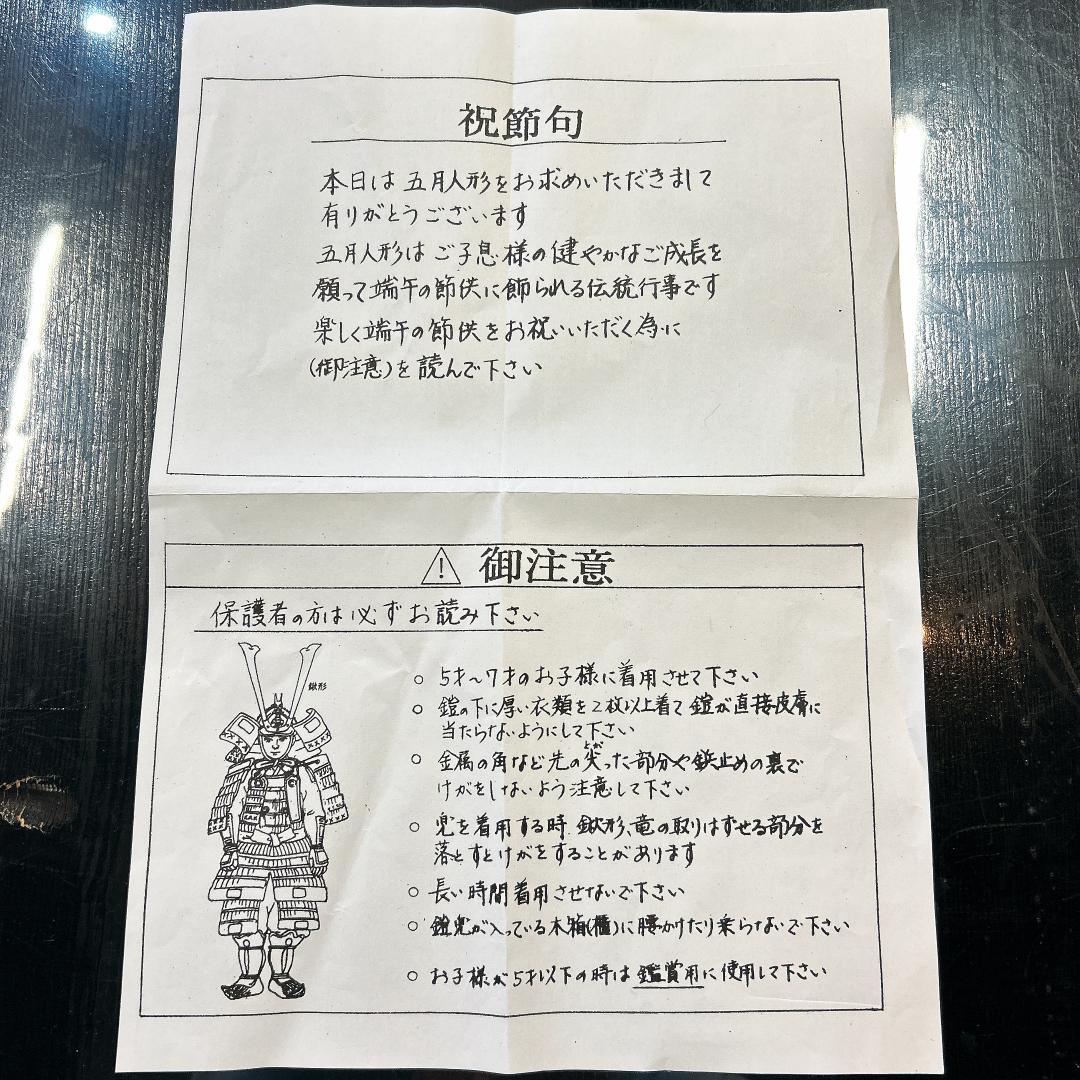 祝節句
本日は五月人形をお求めいただきまして
有りがとうございます
五月人形はご子息様の健やかなご成長を
願って端午の節供に飾られる伝統行事です
楽しく端午の節供をお祝いいただく為に
(御注意)を読んで下さい
御注意
保護者の方は必ずお読み下さい
鍬形
○ 5才〜7才のお子様に着用させて下さい
○ 鎧の下に厚い衣類を2枚以上着て鎧が直接皮膚に
当たらないようにして下さい
とが
○ 金属の角など先の尖った部分や鋲止めの裏で
けがをしないよう注意して下さい
○ 兜を着用する時、鍬形、竜の取りはずせる部分を
落とすとけがをすることがあります
○ 長い時間着用させないで下さい
○ 鎧兜が入っている木箱(櫃)に腰かけたり乗らないで下さい
○ お子様が5才以下の時は鑑賞用に使用して下さい